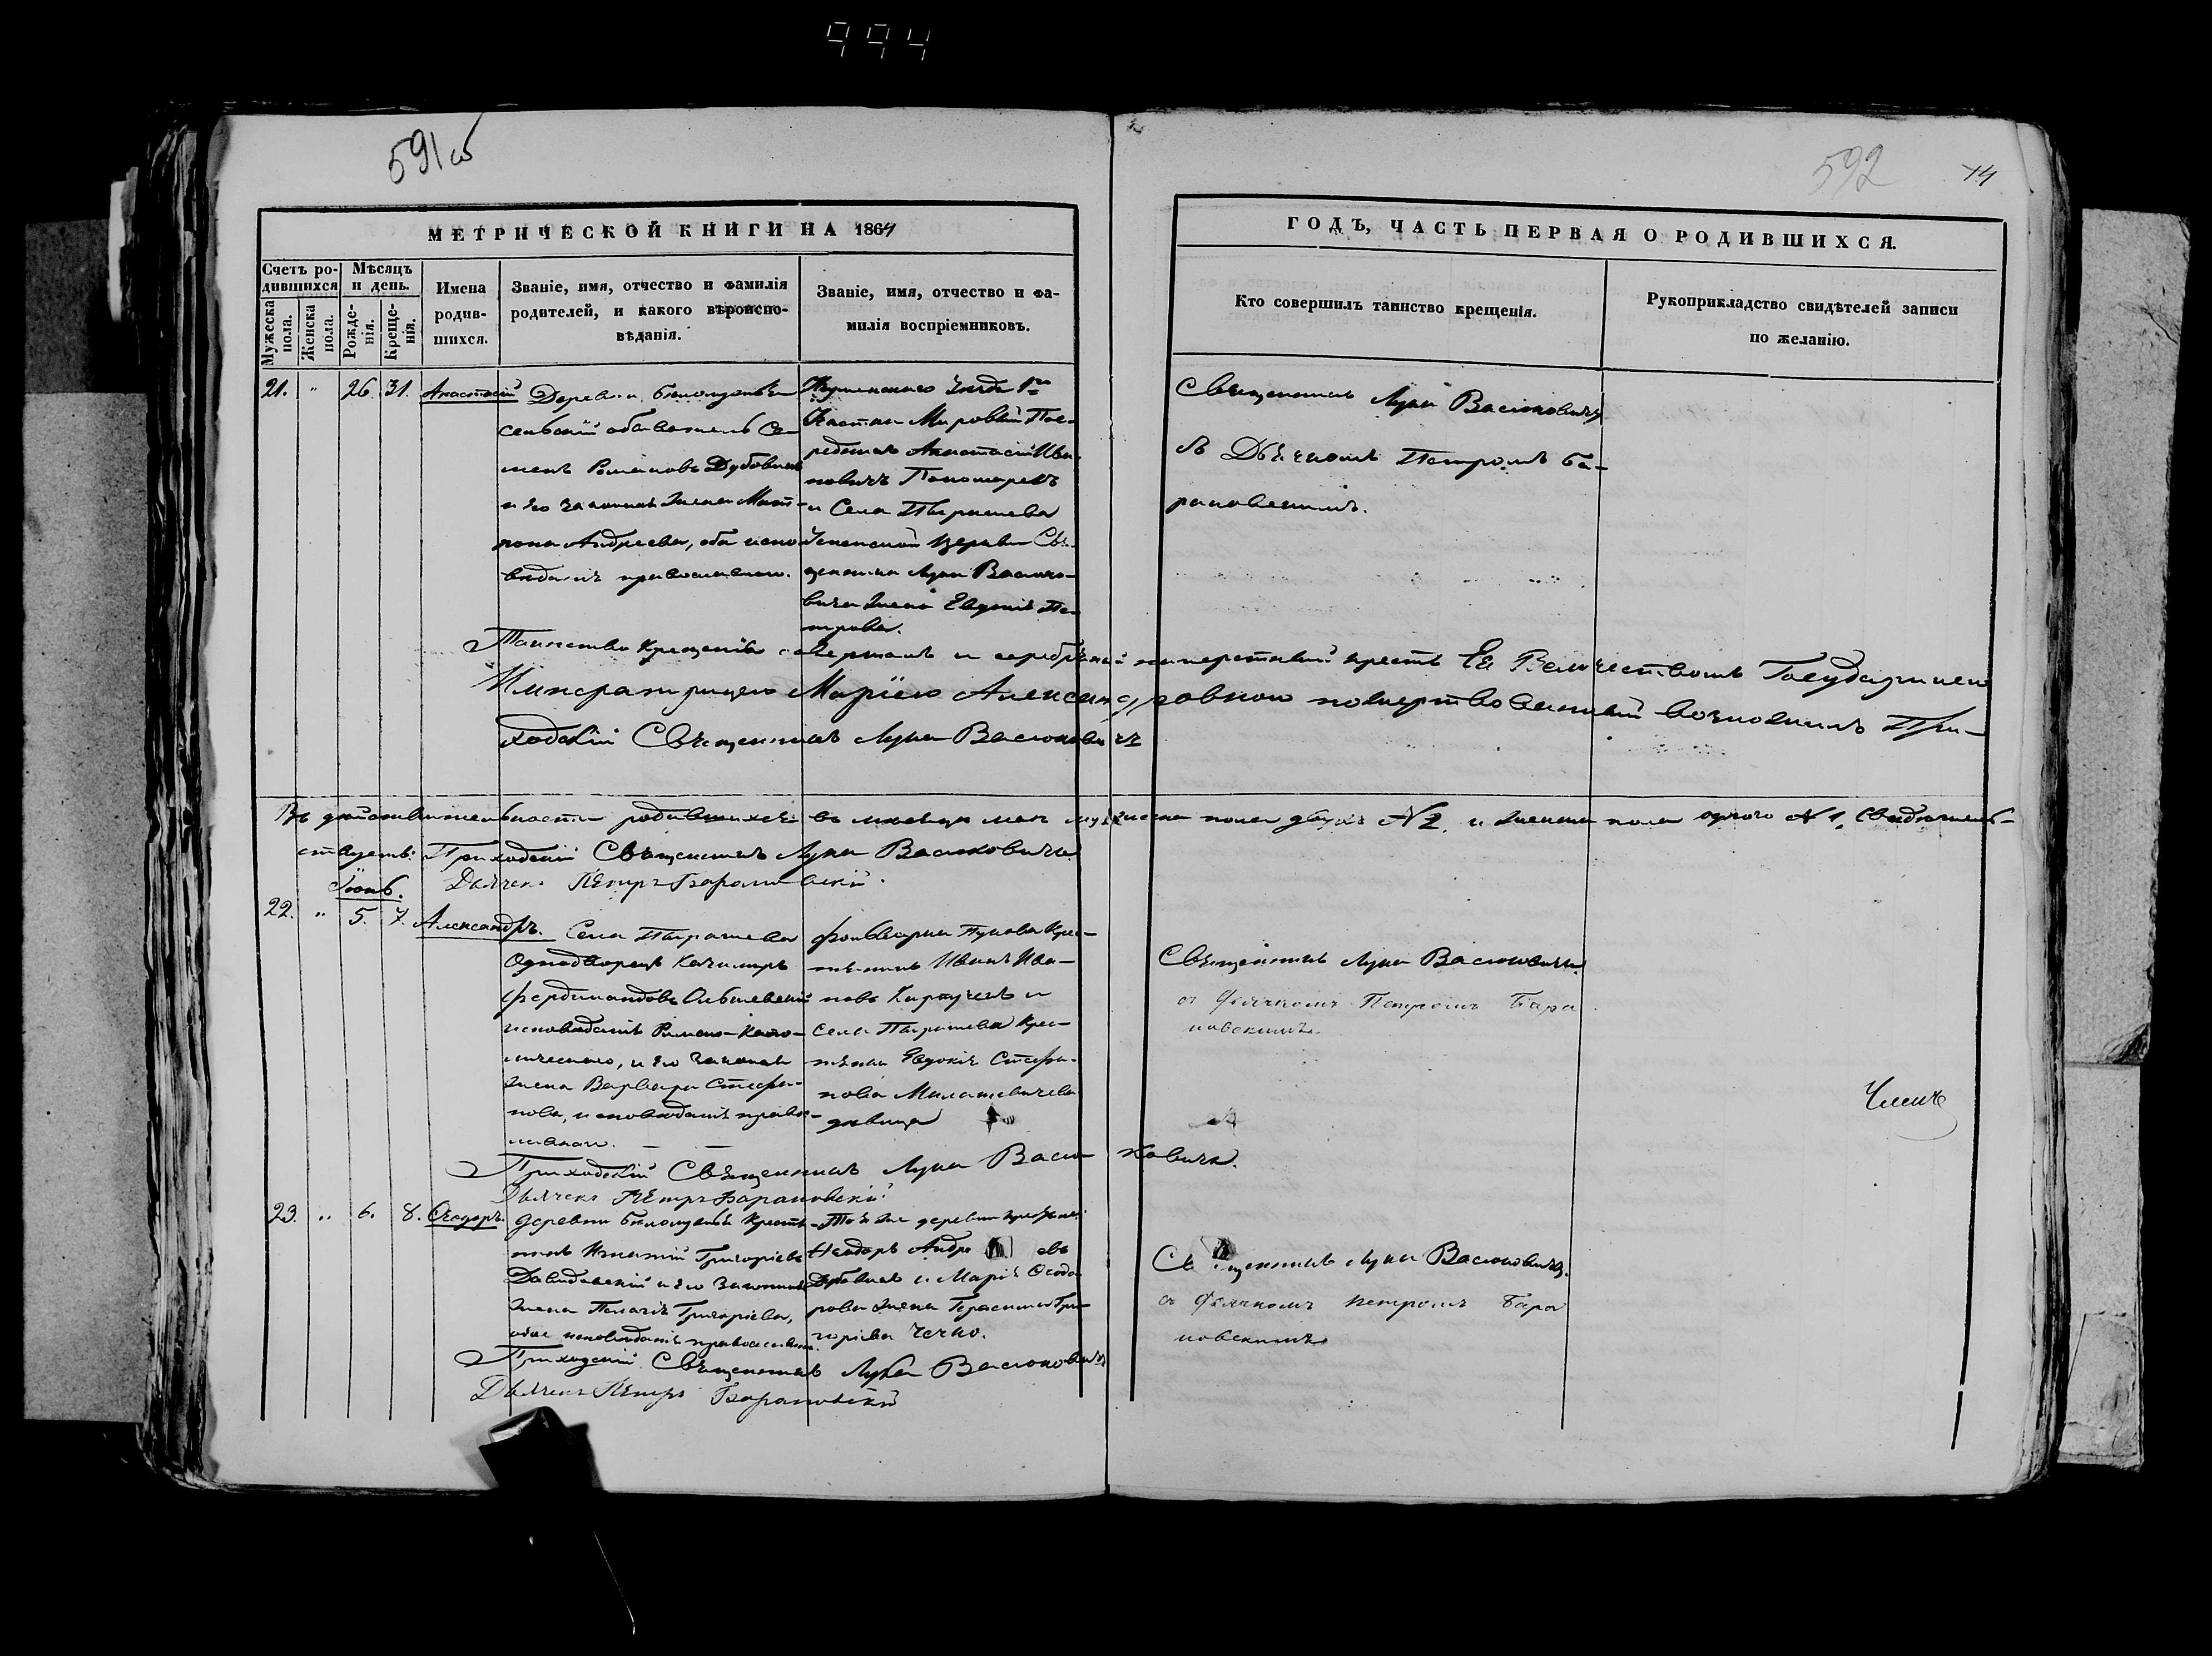 994
591 об
592
14
МЕТРИЧЕСКОЙ КНИГИ НА 1864
ГОДЪ, ЧАСТЬ ПЕРВАЯ О РОДИВШИХСЯ.
Счетъ ро-
дившихся
Мѣсяцъ
и день.
Мужеска
пола.
Женска
пола.
Рожде-
нія.
Креще-
нія.
Имена
родив-
шихся.
Званіе, имя, отчество и фамилія
родителей, и какого вѣроиспо-
вѣданія.
Званіе, имя, отчество и фа-
милія воспріемниковъ.
Кто совершилъ таинство крещенія.
Рукоприкладство свидѣтелей записи
по желанію.
21. " 26. 31. Анастасій
Деревни
сельскій обыватель Се-
менъ Романовъ Дубовикъ
и его законная жена Мат-
рона Андреева, оба испо-
вѣданія православнаго.
уѣзда 1го
Участка Мировый Пос-
редникъ Анастасій Ива-
новичъ Пономаревъ
и Села Пырашева
Успенской церкви Свя-
щенника Луки Васюко-
вича жена Евдокія Пе-
трова.
Священникъ Лука Васюковичъ
съ Дьячкомъ Петромъ Ба-
рановскимъ.
Таинство крещенія совершалъ и серебряный наперстный крестъ Ея Величествомъ Государынею
Императрицею Маріею Александровною пожертвованный возложилъ При-
ходскій Священникъ Лука Васюковичъ
Въ дѣйствительности родившихся въ мѣсяцѣ маѣ мужеска пола двухъ № 2. и женска пола одного № 1. Свидѣтель-
ствуетъ: Приходскій Священникъ Лука Васюковичъ
Дьячекъ Петръ Барановскій.
Іюнь.
22. " 5. 7. Александръ.
Села Пырашева
Однодворецъ Казимиръ
Фердинандовъ
исповѣданія Римско-Като-
лическаго, и его законная
жена Варвара Стефа-
нова, исповѣданія право-
славнаго.
фольварка Пукова Кре-
стьянинъ Иванъ Ива-
новъ и
села Пырашева Кре-
стьянка Евдокія Стефа-
нова
дѣвица
Священникъ Лука Васюковичъ
съ Дьячкомъ Петромъ Бара
новскимъ.
Приходскій Священникъ Лука Васюковичъ.
Дьячекъ Петръ Барановскій.
23. " 6. 8. Ѳеодоръ.
деревни Крестья-
нинъ Игнатій Григоріевъ
Давидовскій и его законная
жена Пелагія Григоріева,
обое исповѣданія православн.
Той же деревни
Ѳеодоръ Андре евъ
Дубовикъ и Марія Ѳеодо-
рова жена Герасима Гри-
горіева
Священникъ Лука Васюковичъ.
съ Дьячкомъ Петромъ Бара
новскимъ
Приходскій Священникъ Лука Васюковичъ
Дьячекъ Петръ Барановскій